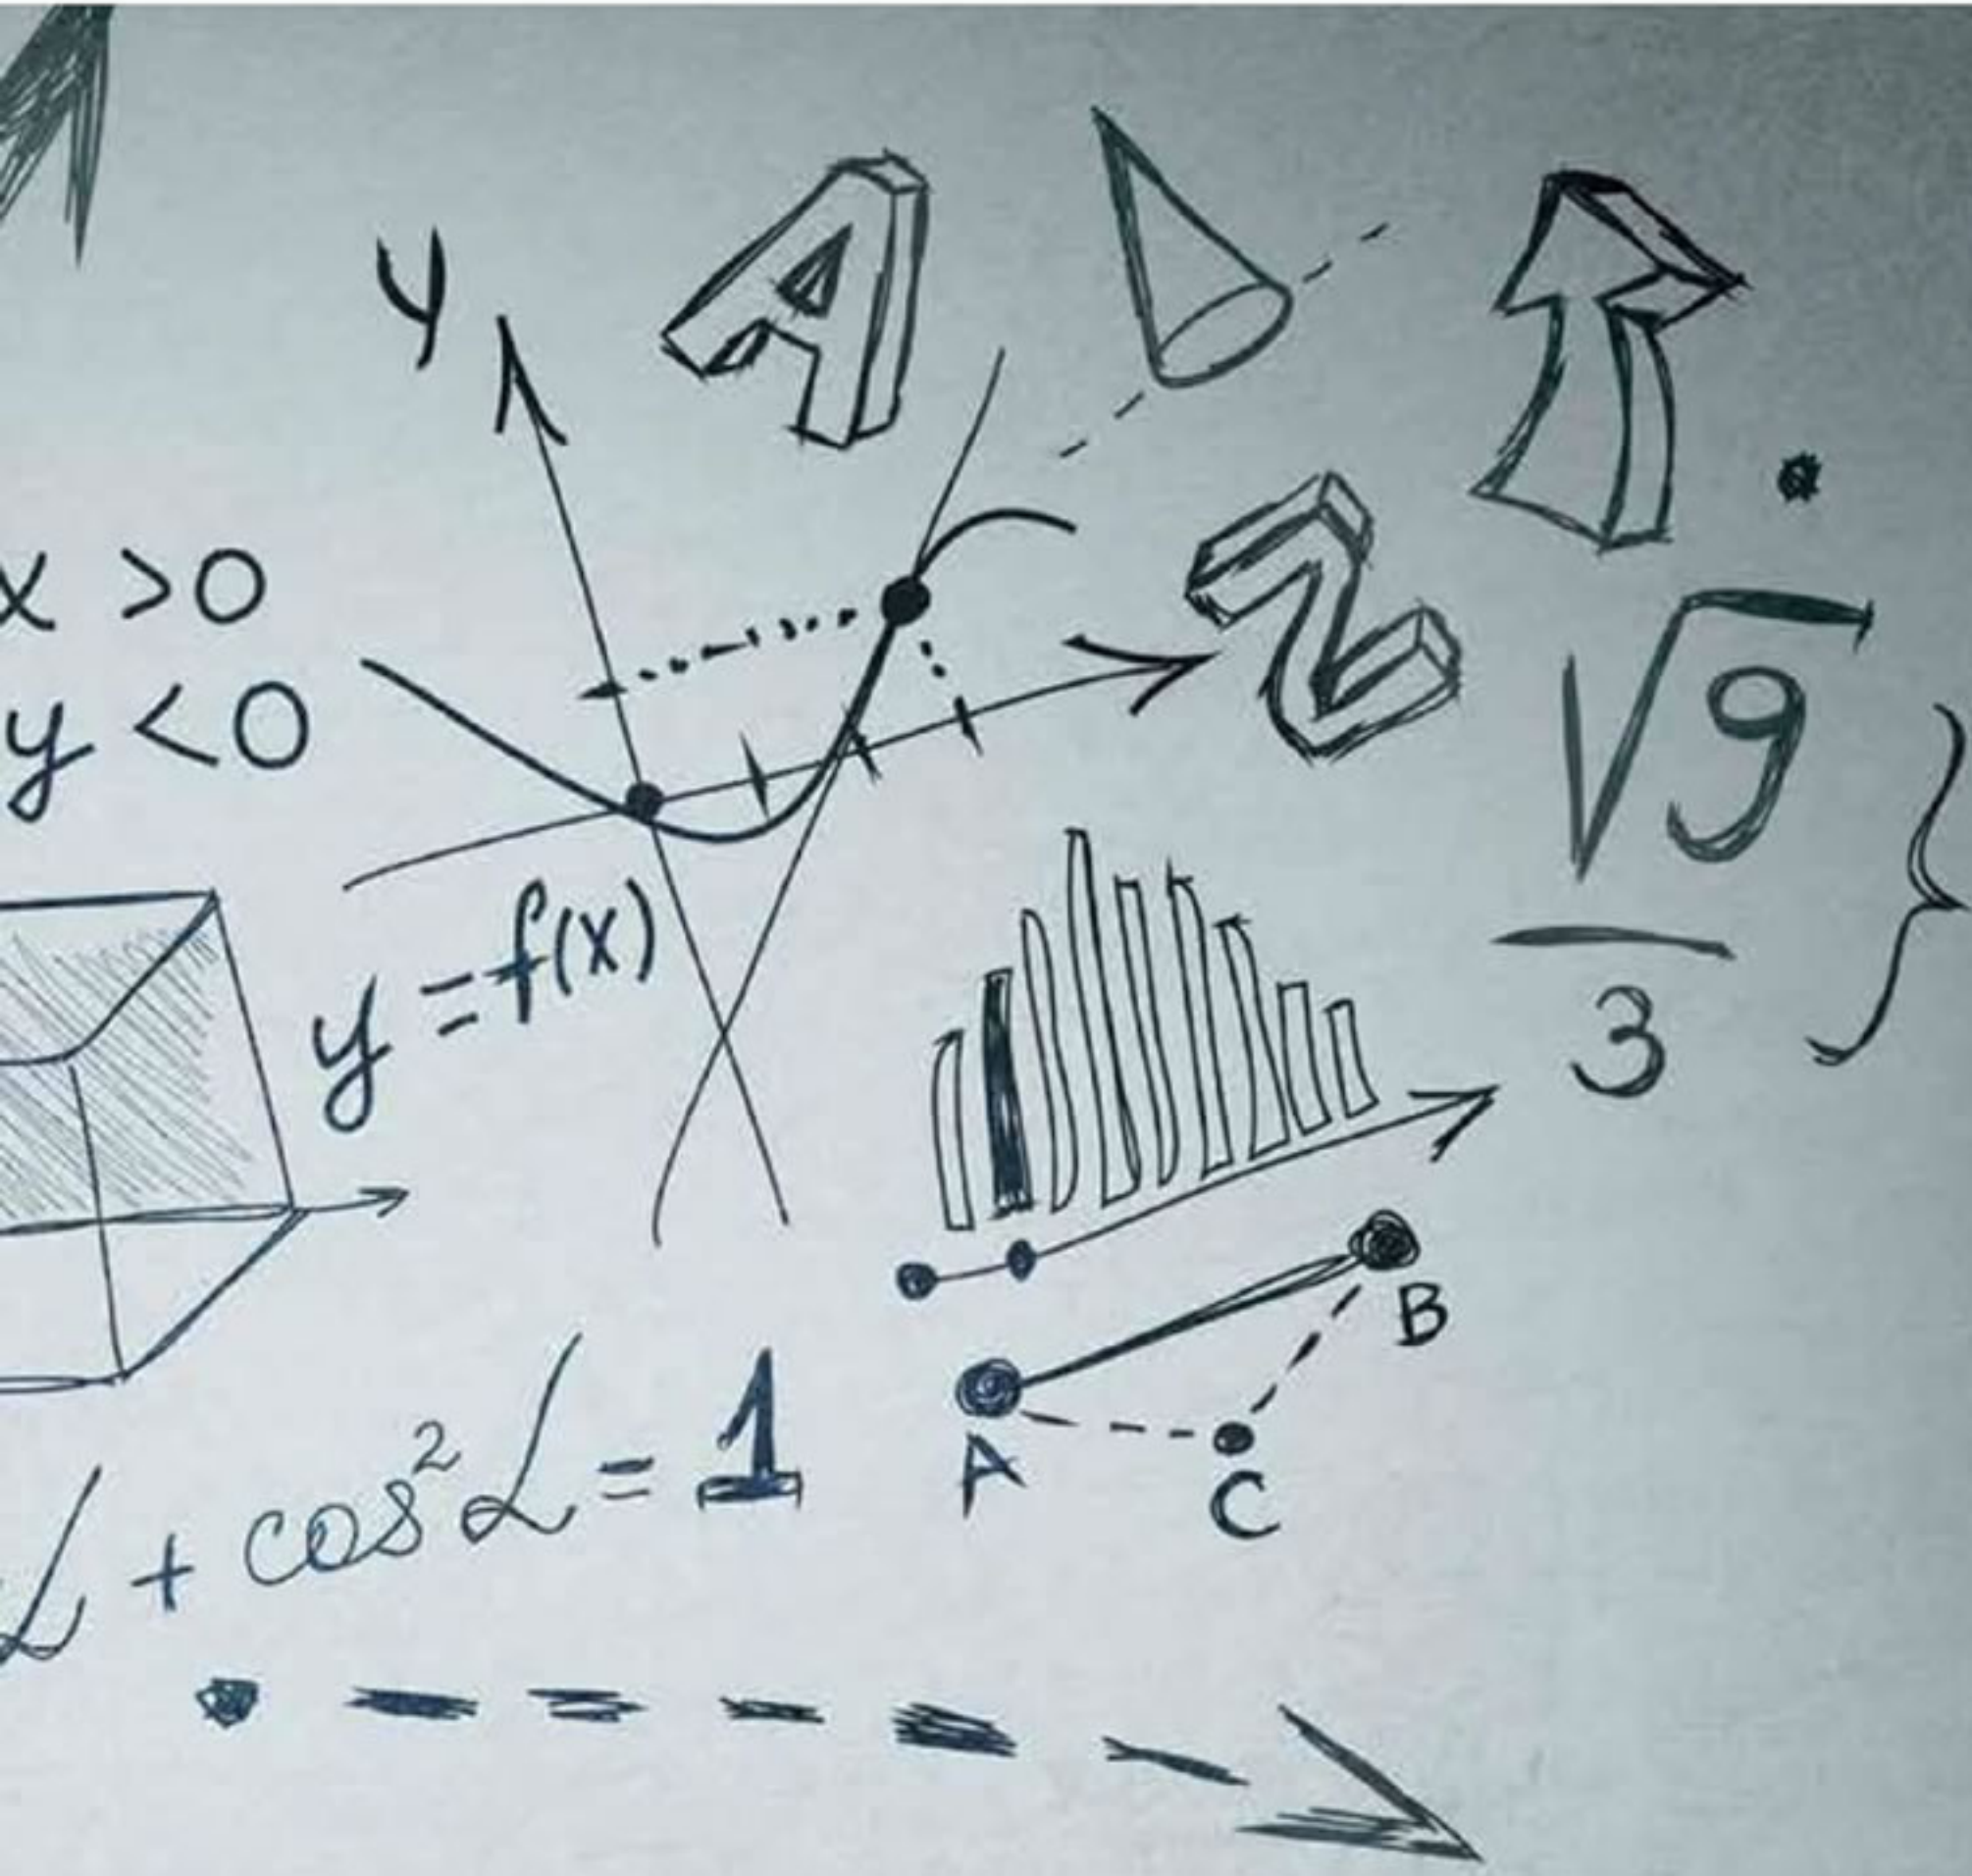 y
A
x >0
y <0
2
√9
3
y = f(x)
B
A
C
α + cos²α = 1